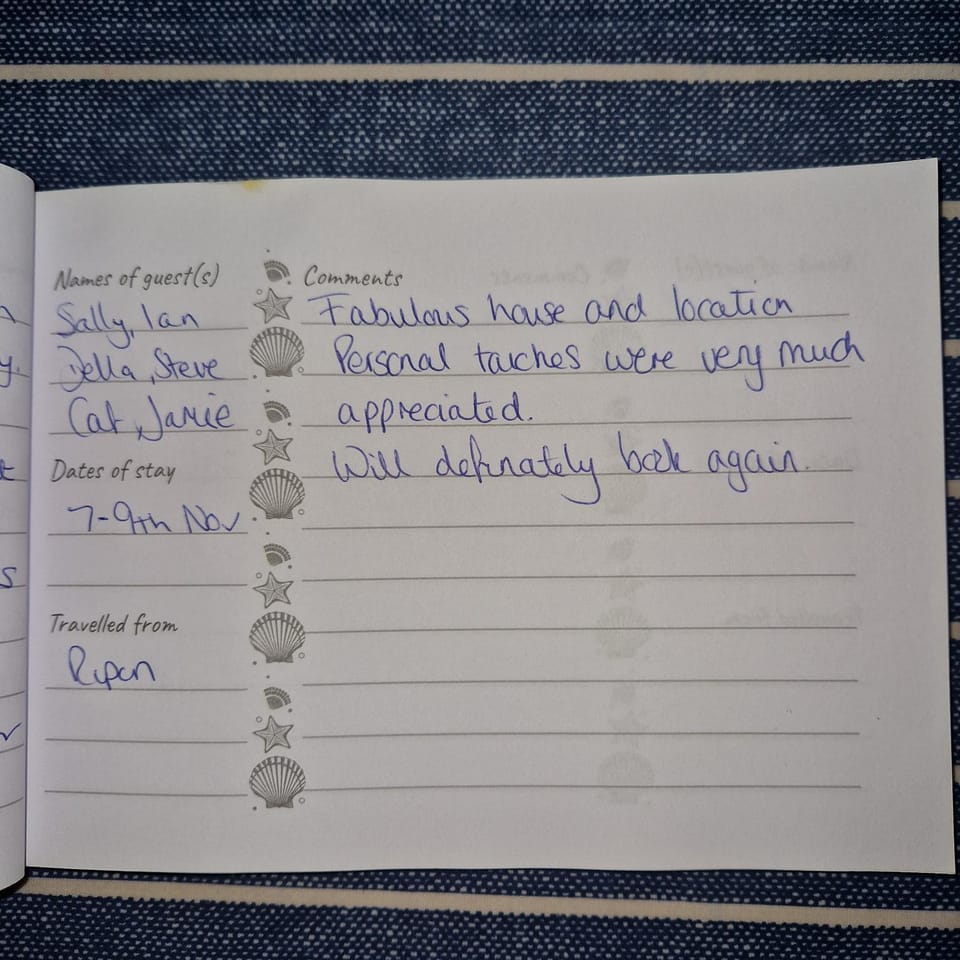 Names of guest(s)
Sally, Ian
Della, Steve
Cat, Jamie
Dates of stay
7-9th Nov
Travelled from
Ripon
Comments
Fabulous house and location
Personal touches were very much
appreciated.
Will definately book again.